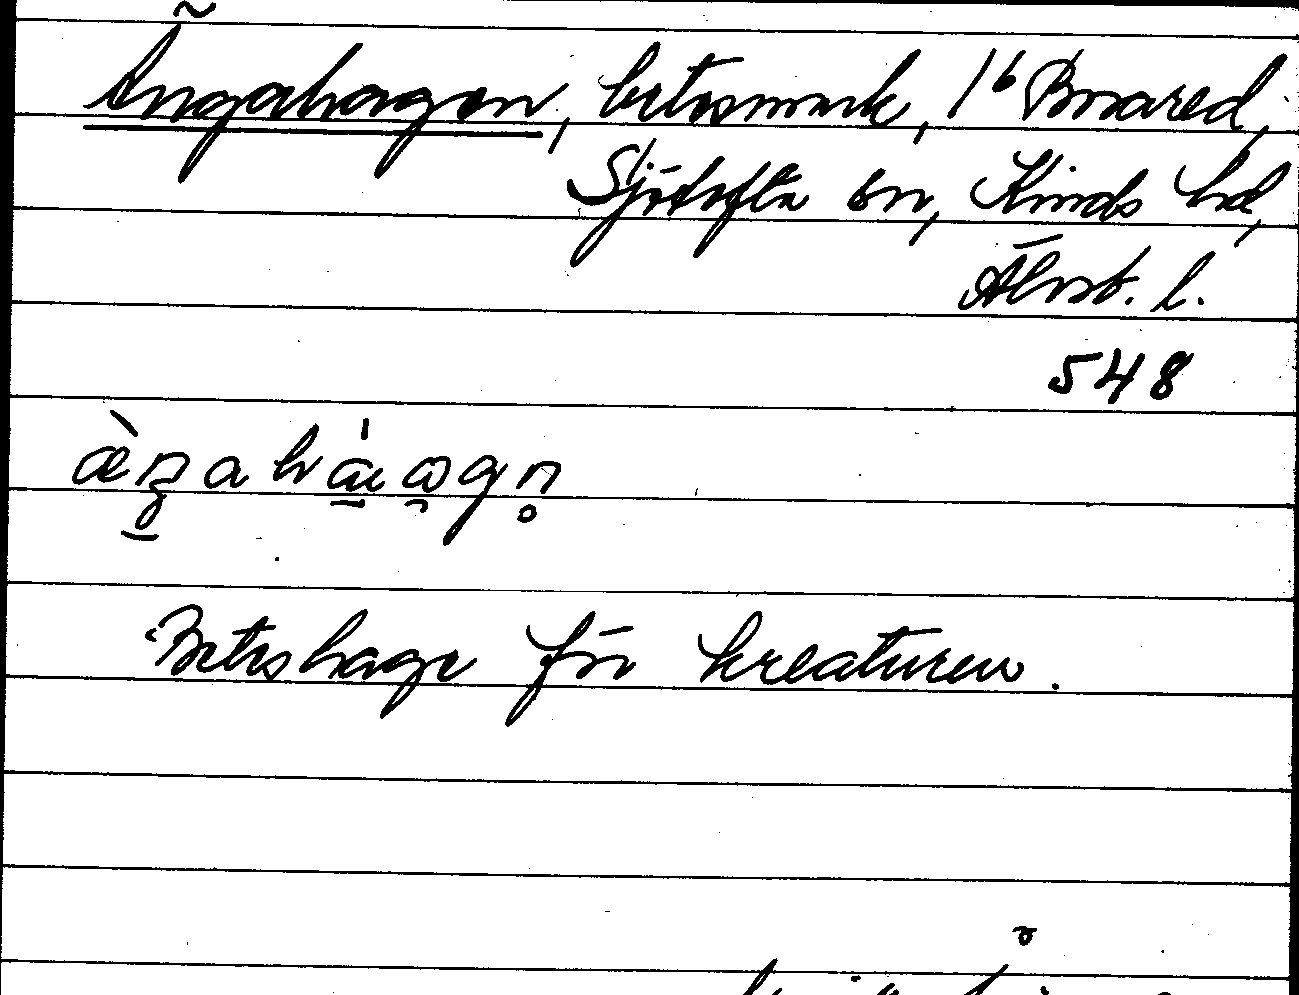 Ängahagen, betesmark, 1⁶ Boared,
Sjötofta sn, Kinds hd,
Älvsb. l.
548
Beteshage för kreaturen.